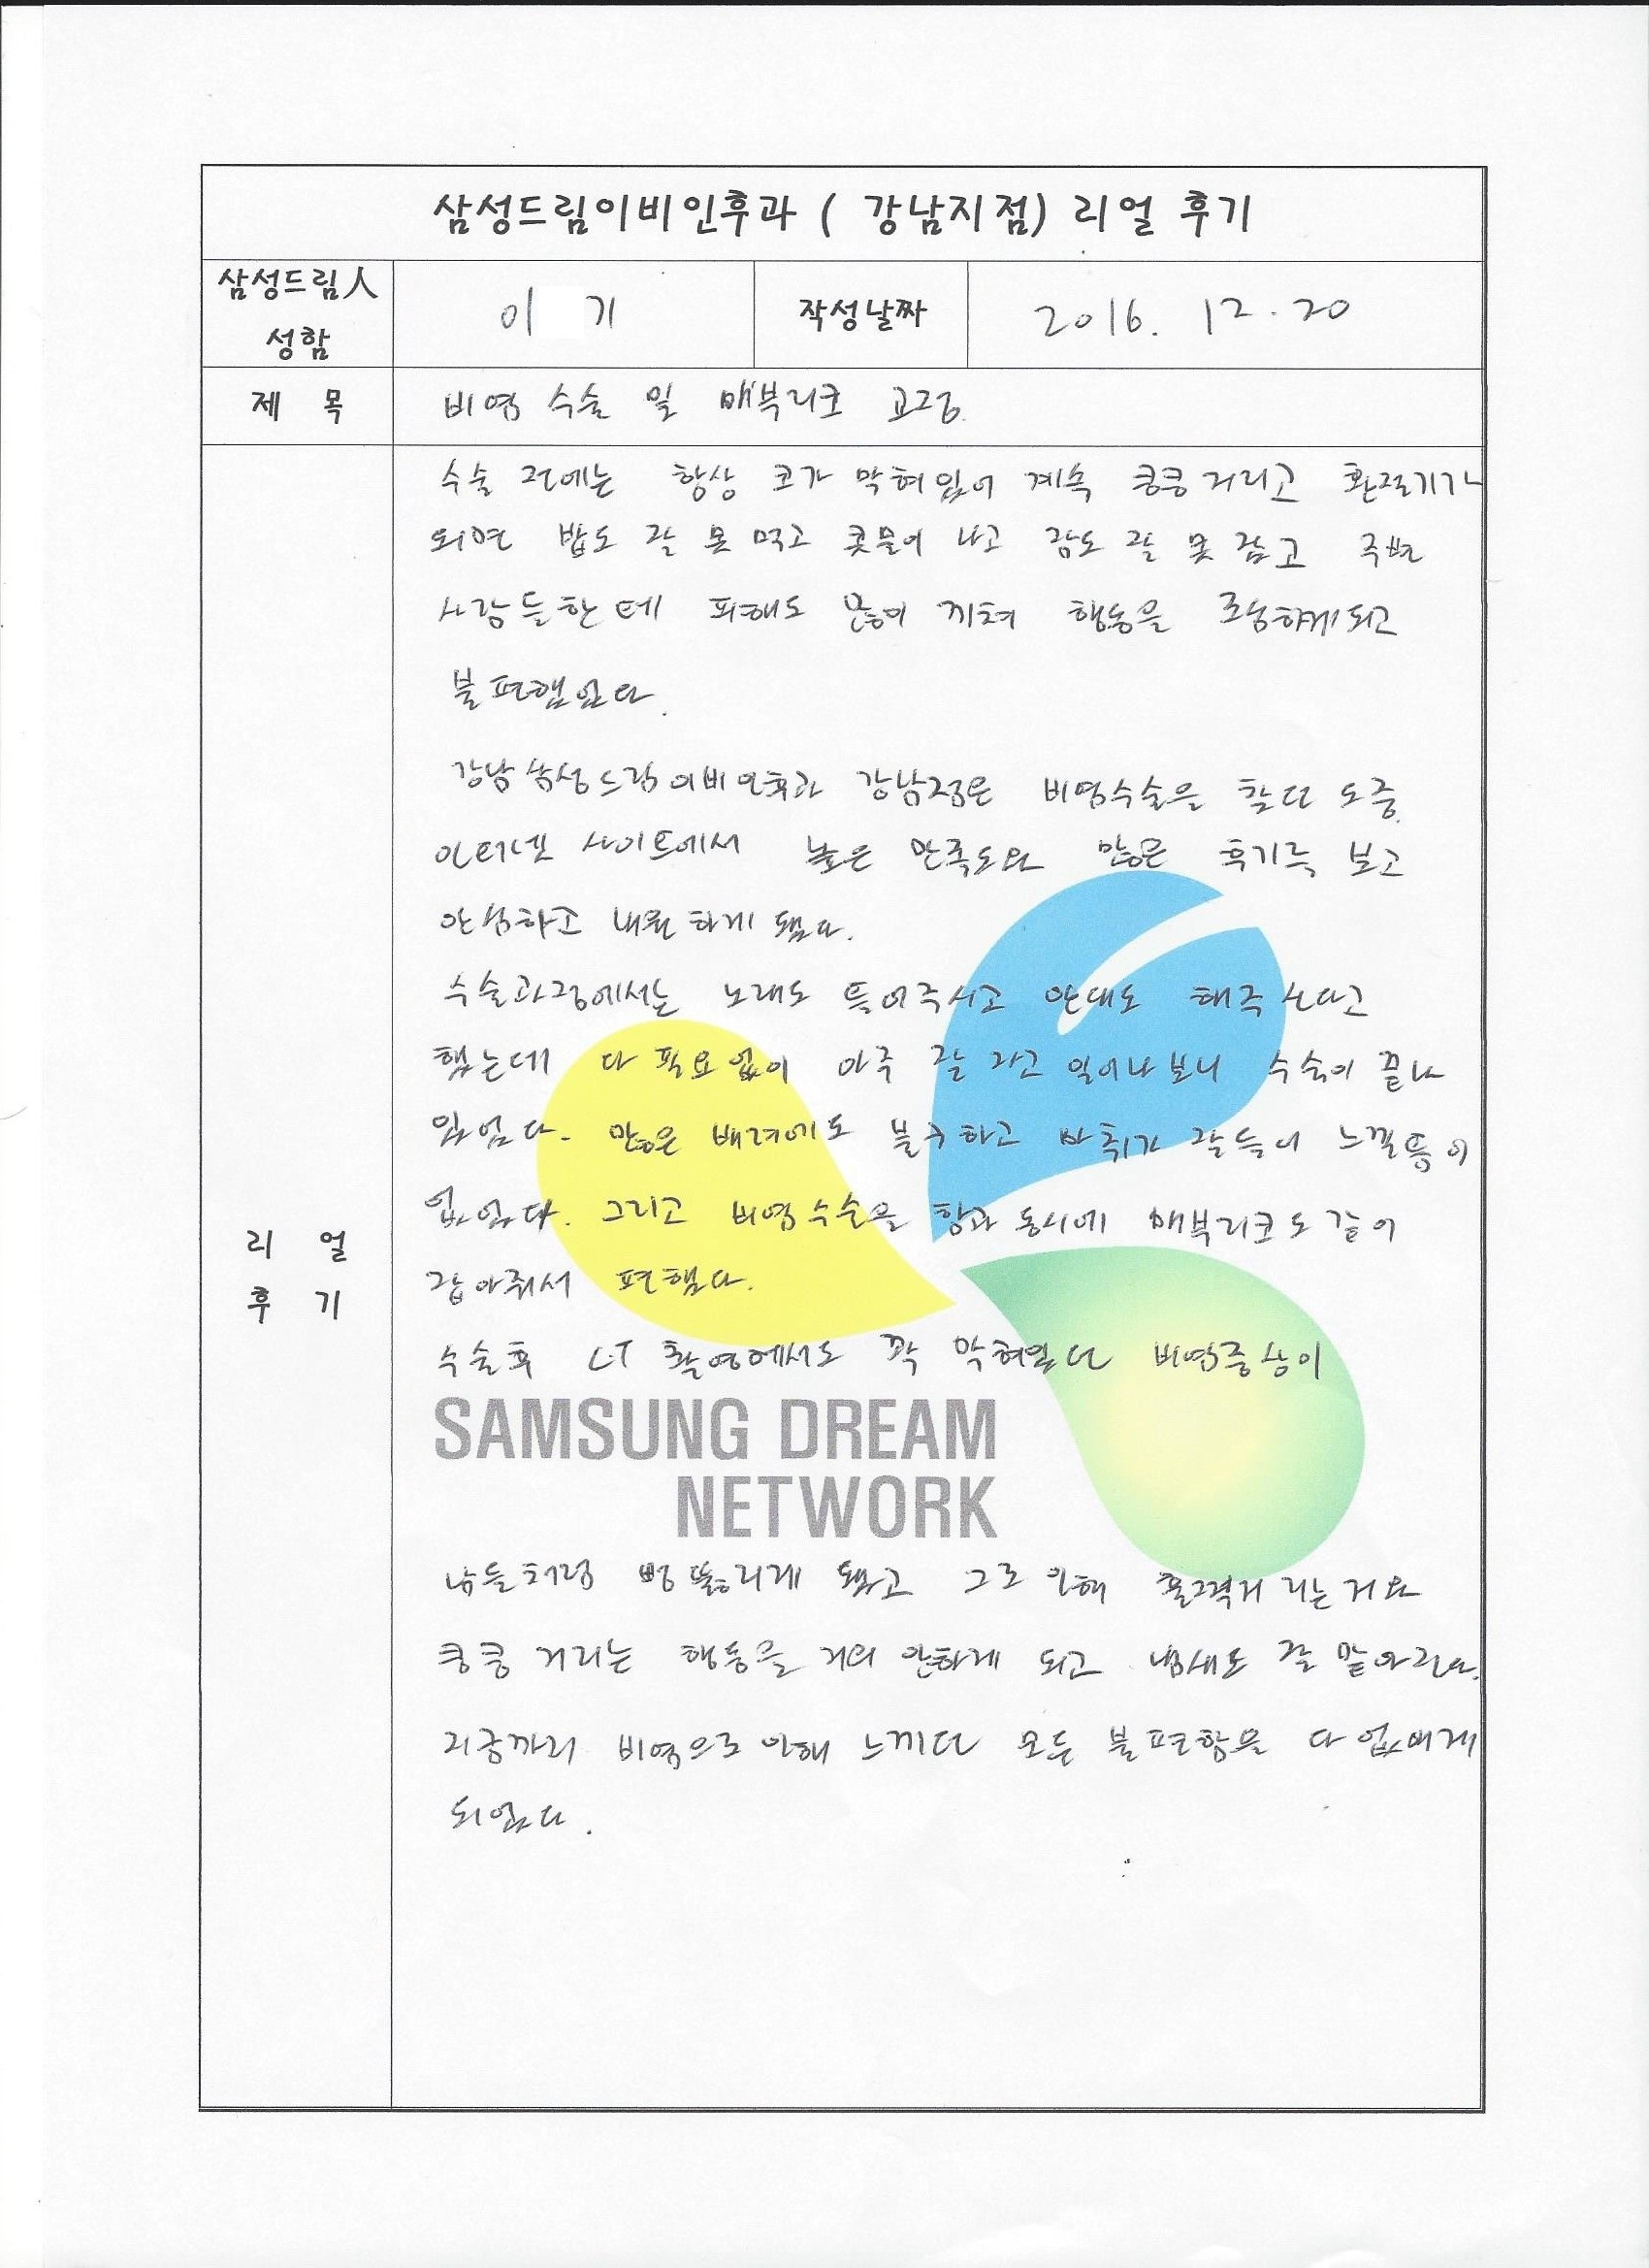 삼성드림이비인후과 ( 강남지점) 리얼 후기
삼성드림人
성함
이 기
작성날짜
2016. 12. 20
제 목
비염 수술 및 매부리코 교정.
리 얼
후 기
수술 전에는 항상 코가 막혀있어 계속 킁킁 거리고 환절기가
되면 밥도 잘 못 먹고 콧물이 나고 잠도 잘 못 잠고 주변
사람들한테 피해도 많이 끼쳐 행동을 조심하게되고
불편했었다.
강남삼성드림이비인후과 강남점은 비염수술을 찾던 도중
인터넷 사이트에서 높은 만족도와 많은 후기를 보고
안심하고 내원하게 됐다.
수술과정에서는 노래도 틀어주시고 안대도 해주신다고
했는데 다 필요없이 아주 잘 자고 일어나보니 수술이 끝나
있었다. 많은 배려에도 불구하고 마취가 잘들어 느낄틈이
없었다. 그리고 비염수술을 함과 동시에 매부리코도 같이
잡아줘서 편했다.
수술후 CT 촬영에서도 꽉 막혀있던 비염증상이
SAMSUNG DREAM
NETWORK
남들처럼 뻥 뚫리게 됐고 그로 인해 훌쩍거리는거와
킁킁 거리는 행동을 거의 안하게 되고 냄새도 잘 맡아진다.
지금까지 비염으로 인해 느끼던 모든 불편함을 다 없애게
되었다.